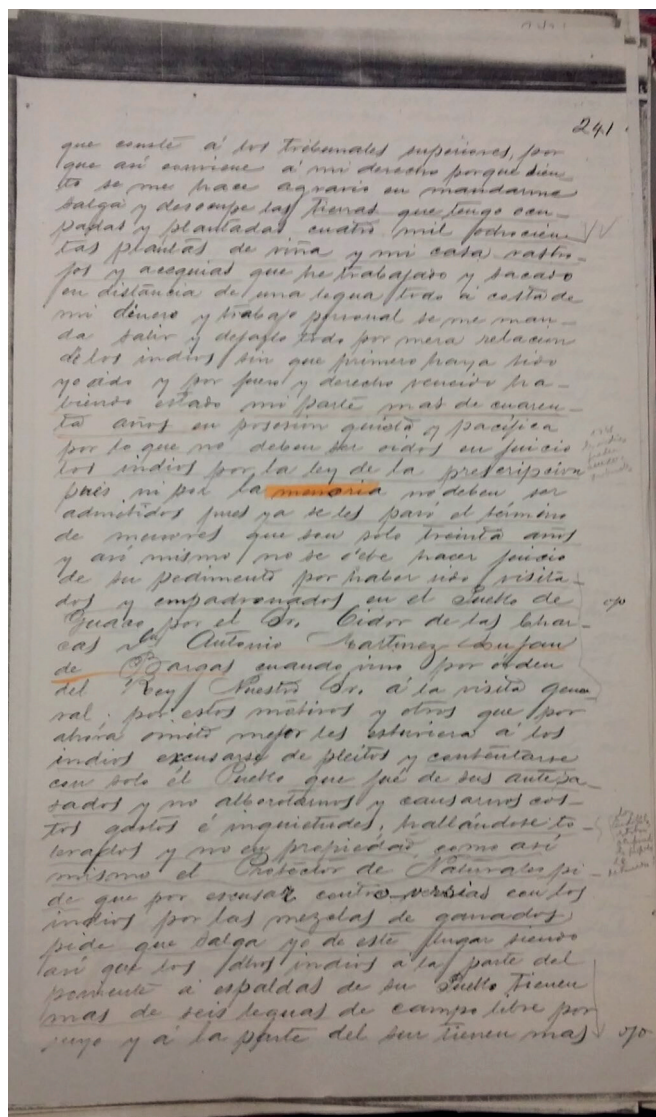 241
que conste á los tribunales superiores, por
que así conviene á mi derecho porque sien-
to se me hace agravio en mandarme
salga y desocupe las tierras que tengo ocu-
padas y plantadas cuatro mil ochocien-
tas plantas de viña y mi casa rastro-
jos y acequias que he trabajado y sacado
en distancia de una legua todo á costa de
mi dinero y trabajo personal se me man-
da salir y dejarlo todo por mera relacion
de los indios sin que primero haya sido
yo oido y por fuero y derecho vencido ha-
biendo estado mi parte mas de cuaren-
ta años en posesion quieta y pacífica
por lo que no deben ser oidos en juicio
los indios por la ley de la prescripcion
pues ni por la memoria no deben ser
admitidos pues ya se les paró el término
de menores que son solo treinta años
y así mismo no se debe hacer juicio
de su pedimento por haber sido visita-
dos y empadronados en el Pueblo de
por el Sr. Oidor de las Char-
cas Dn Antonio Martinez Lujan
de Bargas cuando vino por orden
del Rey Nuestro Sr. á la visita gene-
ral, por estos motivos y otros que por
ahora omito mejor les estuviera a los
indios excusarse de pleitos y contentarse
con solo él Pueblo que fué de sus antepa-
sados y no alborotarnos y causarnos cos-
tos gastos é inquietudes, hallándose to-
lerados y no en propiedad, como así
mismo el Protector de Naturales pi-
de que por escusar controversias con los
indios por las mezclas de ganados
pide que salga yo de este lugar siendo
así que los dhos indios a la parte del
poniente á espaldas de su Pueblo tienen
mas de seis leguas de campo libre por
suyo y á la parte del sur tienen mas